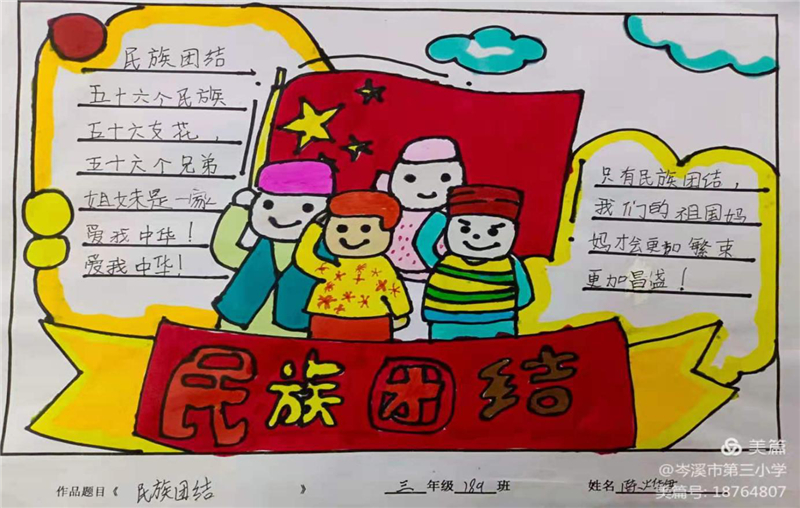 民族团结
五十六个民族
五十六支花，
五十六个兄弟
姐妹是一家
爱我中华！
爱我中华！
只有民族团结，
我们的祖国妈
妈才会更加繁束
更加昌盛！
民族团结
美篇
@岑溪市第三小学
美篇号: 18764807
作品题目《 民族团结 》 三 年级 189 班 姓名